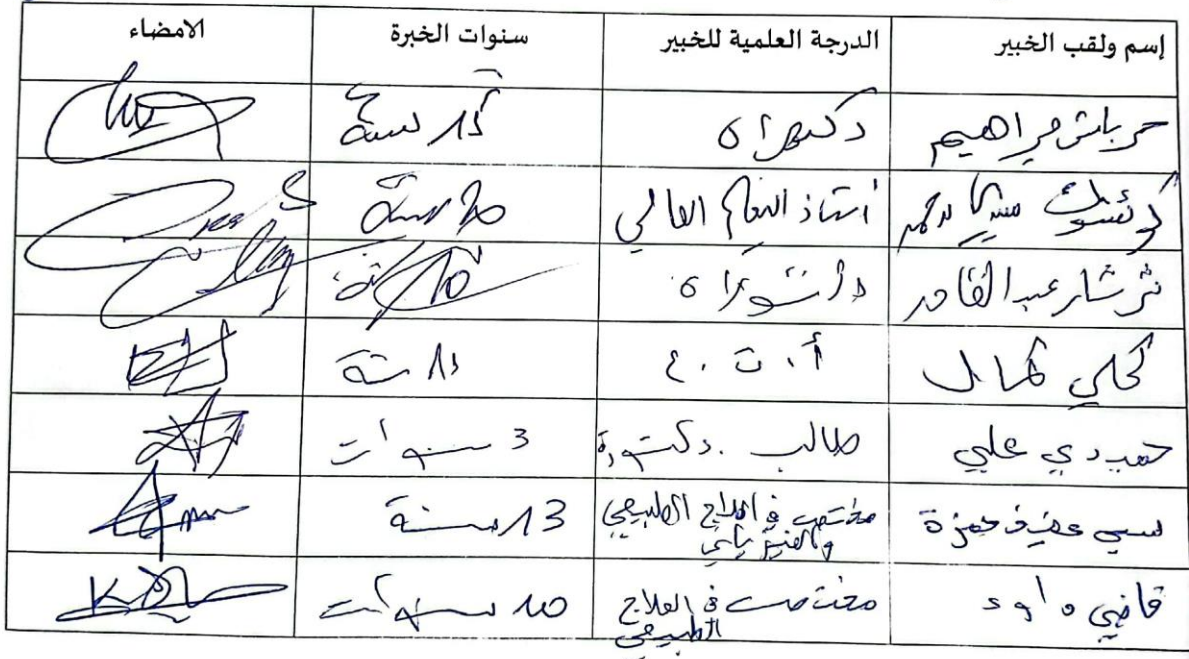 إسم ولقب الخبير الدرجة العلمية للخبير سنوات الخبرة الامضاء
حرباش براهيم دكتوراه 15 سنة
سيدا محمد أستاذ التعليم العالي 20 سنة
عبد القادر دكتوراه 15 سنة
كحلي كمال أ. ت. ع 15 سنة
حميدي علي طالب دكتورة 3 سنوات
سي عفيف حمزة مختص في العلاج الطبيعي والفيزيائي 13 سنة
قاضي داود مختص في العلاج الطبيعي 10 سنوات